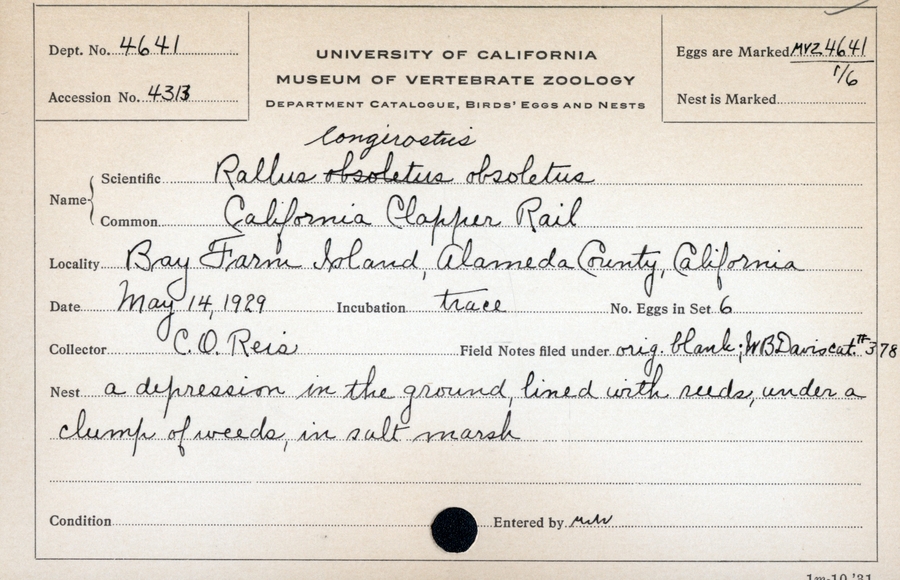 Dept. No. 4641
Accession No. 4313
UNIVERSITY OF CALIFORNIA
MUSEUM OF VERTEBRATE ZOOLOGY
DEPARTMENT CATALOGUE, BIRDS' EGGS AND NESTS
Eggs are Marked MVZ 4641
1/6
Nest is Marked
longirostris
Name
Scientific Rallus obsoletus obsoletus
Common California Clapper Rail
Locality Bay Farm Island, Alameda County, California
Date May 14, 1929 Incubation trace No. Eggs in Set 6
Collector C.O. Reis Field Notes filed under orig. blank; WBDavis cat. #378
Nest a depression in the ground, lined with reeds, under a
clump of weeds, in salt marsh
Condition Entered by
1m-10,'31